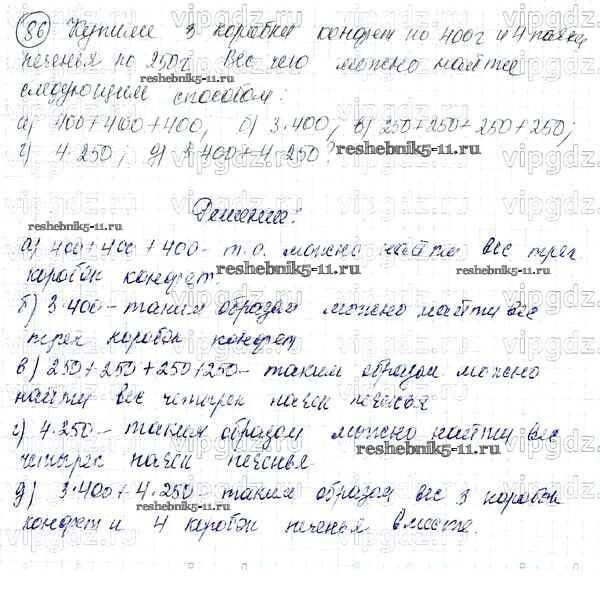 86) Купили 3 коробки конфет по 400г и 4 пачки
печенья по 250г Вес чего можно найти
следующим способом:
а) 400+400+400, б) 3·400, в) 250+250+250+250;
г) 4·250; д) 3·400+4·250?
Решение:
а) 400+400+400- т.о. можно найти вес трех
коробок конфет.
б) 3·400- таким образом можно найти вес
трех коробок конфет
в) 250+250+250+250- таким образом можно
найти вес четырех пачек печенья
г) 4·250- таким образом можно найти вес
четырех пачек печенья
д) 3·400+4·250- таким образом вес 3 коробок
конфет и 4 коробок печенья вместе.
reshebnik5-11.ru
vipgdz.com